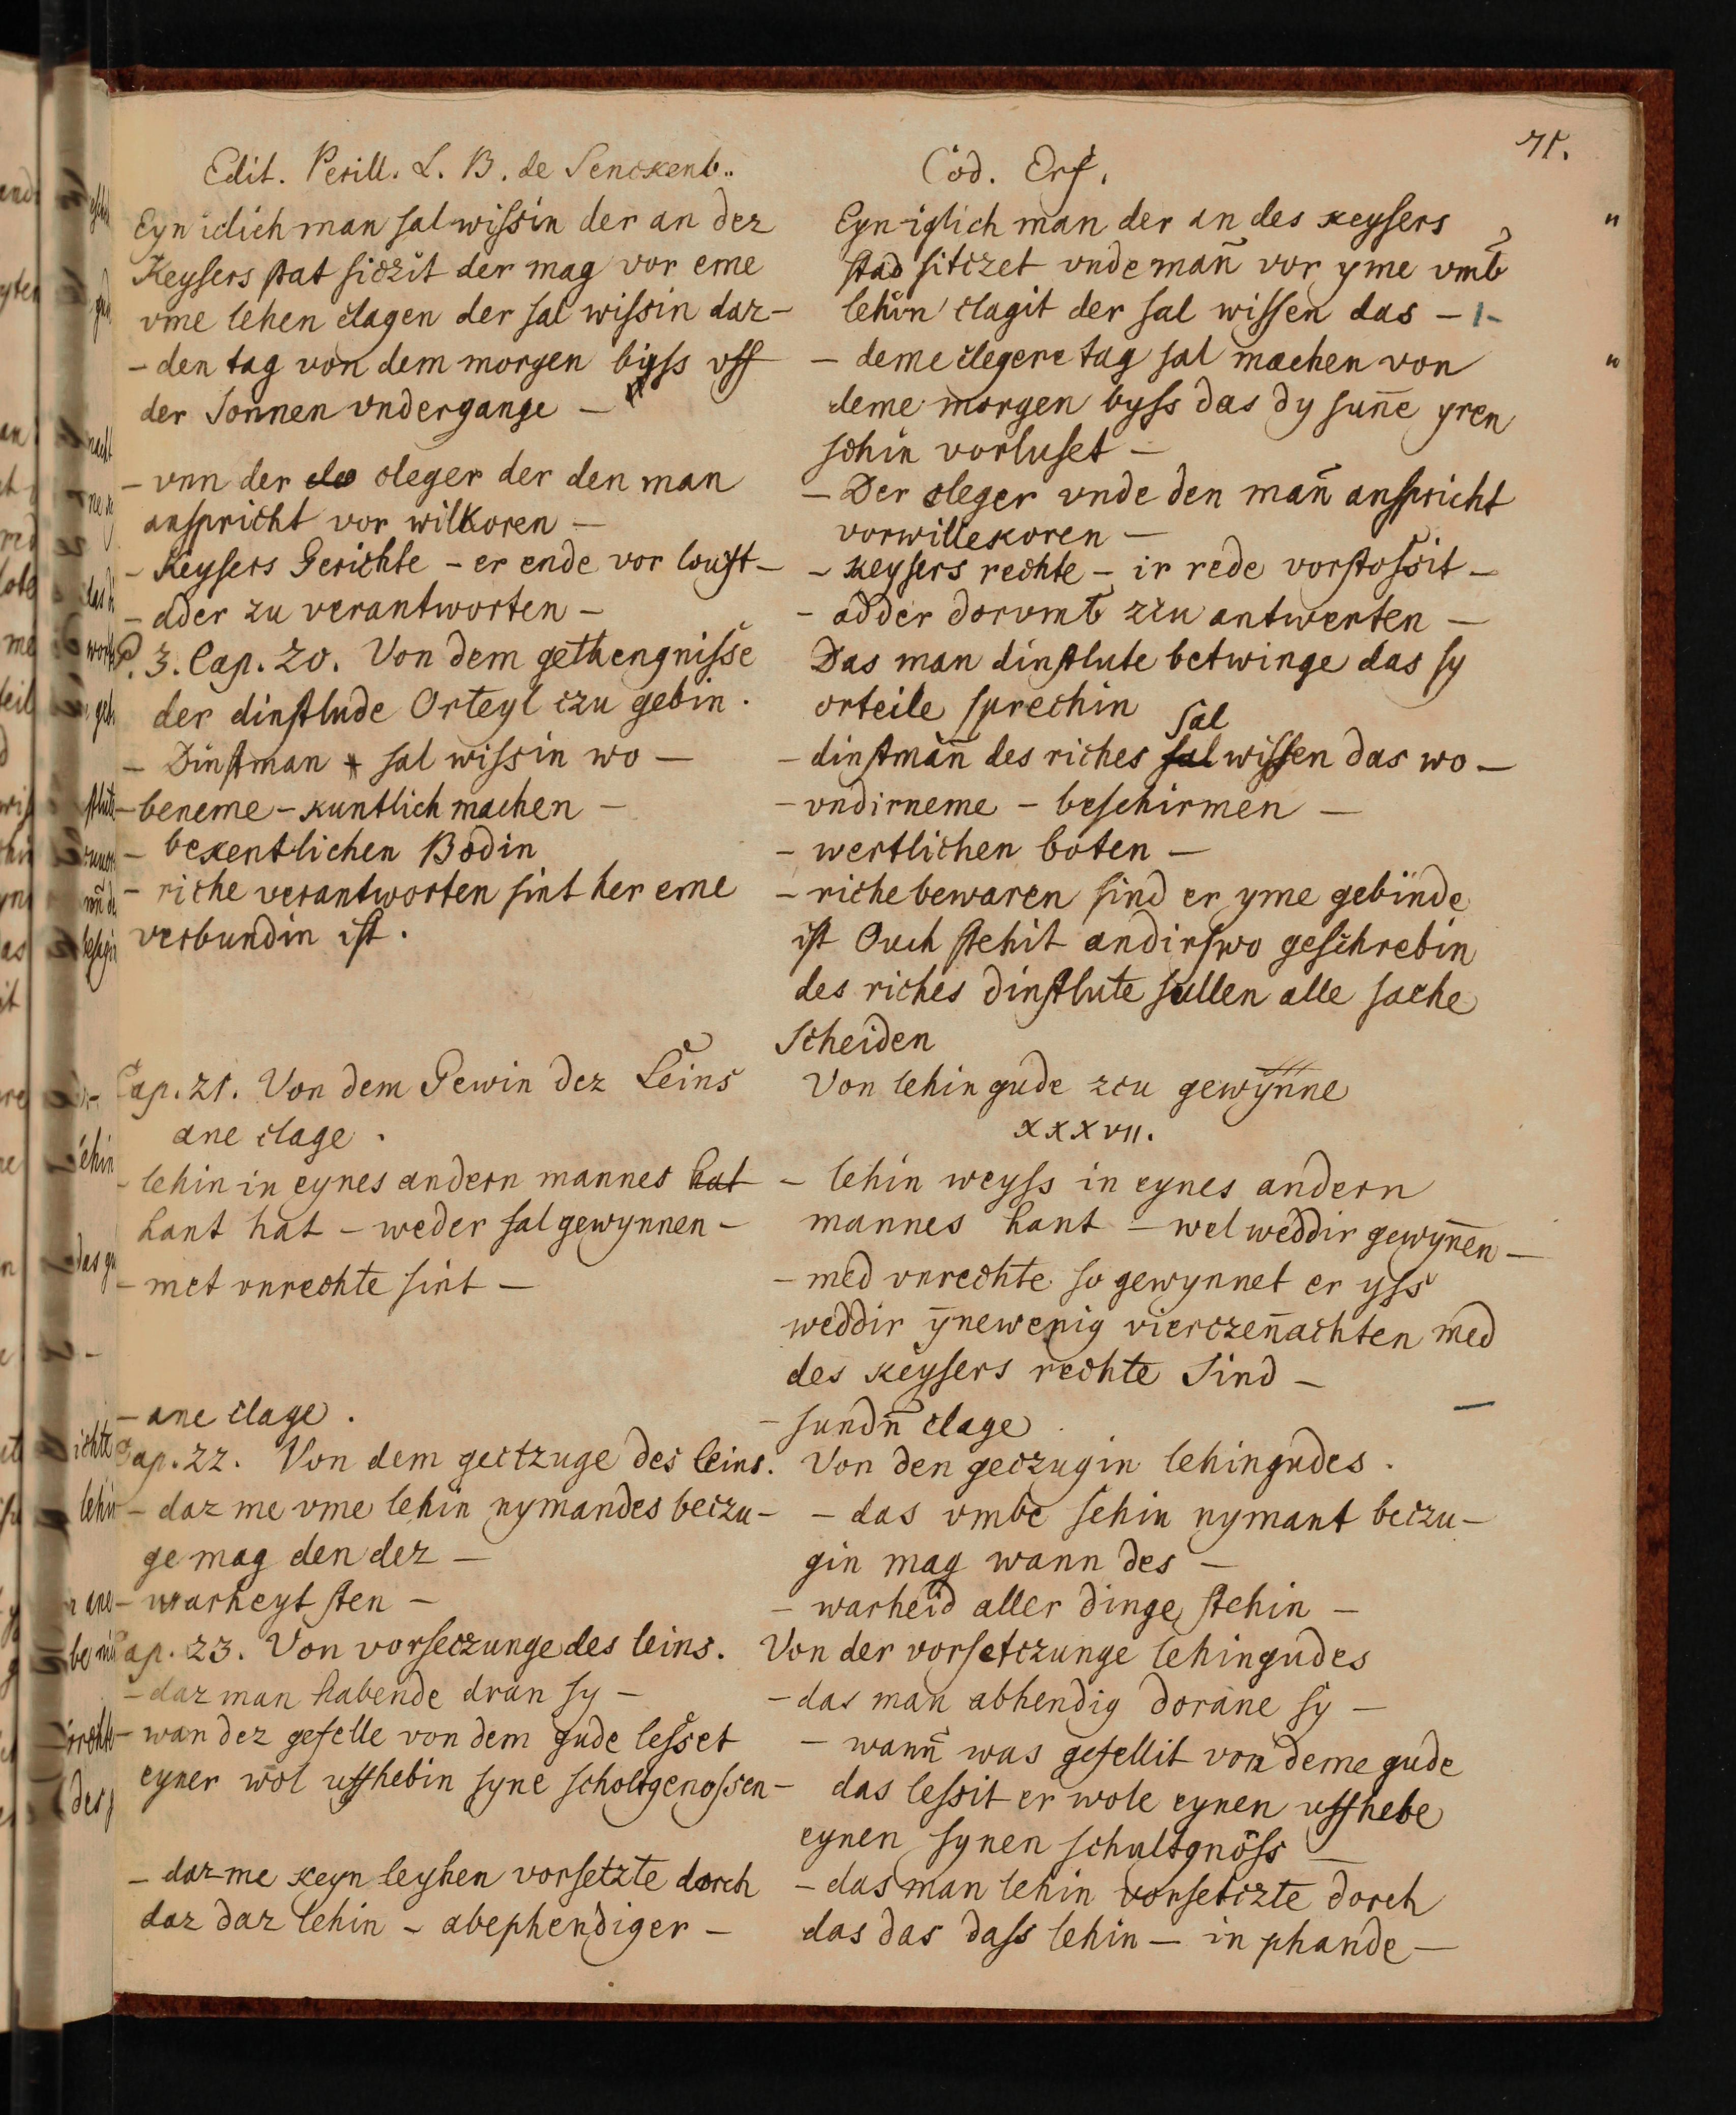 71.
Edit. Perill. L. B. de Senckenb.
Eyn iclich man sal wissin der an dez
Keysers stat siczit der mag vor eme
vme lehen clagen der sal wissin daz -
- den tag von dem morgen biss vff
der Sonnen vndergange -
- vnn der cleger der den man
anspricht vor wilkoren -
- Keysers Gerichte - er ende vor louft -
- ader zu verantworten -
P. 3. Cap. 20. Von dem gethengnisse
der dinstlude Orteyl czu gebin.
- Dinstman sal wissin wo -
- beneme - kuntlich machen -
- bekentlichen Bodin
- riche verantworten sint her eme
verbundin ist.
Cap. 21. Von dem Gewin dez Leins
ane clage.
- lehin in eynes andern mannes hat
hant hat - weder sal gewynnen -
- met vnrechte sint -
- ane clage.
Cap. 22. Von dem gectzuge des leins.
- daz me vme lehin nymandes beczu-
ge mag den dez -
- warheyt sten -
Cap. 23. Von vorseczunge des leins.
- daz man habende dran sy -
- wan dez gefelle von dem gude lesset
eyner wol uffhebin syne scholtgenossen -
- daz me keyn leyhen vorsetzte dorch
daz daz lehin - abephendiger -
Cod. Erf.
Eyn iglich man der an des keysers
stad sitczet vnde man̄ vor yme vmb
lehin clagit der sal wissen das -
- deme clegere tag sal machen von
deme morgen byss das dy sun̄e yren
schin vorluset -
- Der cleger vnde den man̄ anspricht
vorwillekoren -
- keysers rechte - ir rede vorstossit -
- adder dorvmb zcu antwerten -
Das man dinstlute betwinge das sy
orteile sprechin
sal
- dinstman̄ des riches sal wissen das wo -
- vndirneme - beschirmen -
- wertlichen boten -
- riche bewaren sind er yme gebunde
ist Ouch stehit andirswo geschrebin
des riches dinstlute sullen alle sache
scheiden
Von lehin gude zcu gewynne
xxxvii.
- lehin weyss in eynes andern
mannes hant - wel weddir gewyn̄en -
- med vnrechte so gewynnet er yss
weddir ynewenig vierczen̄achten med
des keysers rechte Sind -
- sundn̄ clage
Von den geczugin lehingudes.
- das vmbe lehin nymant beczu-
gin mag wann des -
- warheid aller dinge stehin -
Von der vorsetczunge lehingudes
- das man abhendig dorane sy -
- wann̄ was gefellit von deme gude
das lessit er wole eynen uffhebe
eynen synen schultgnöss -
- das man lehin vorsetczte dorch
das das dass lehin - in phande -